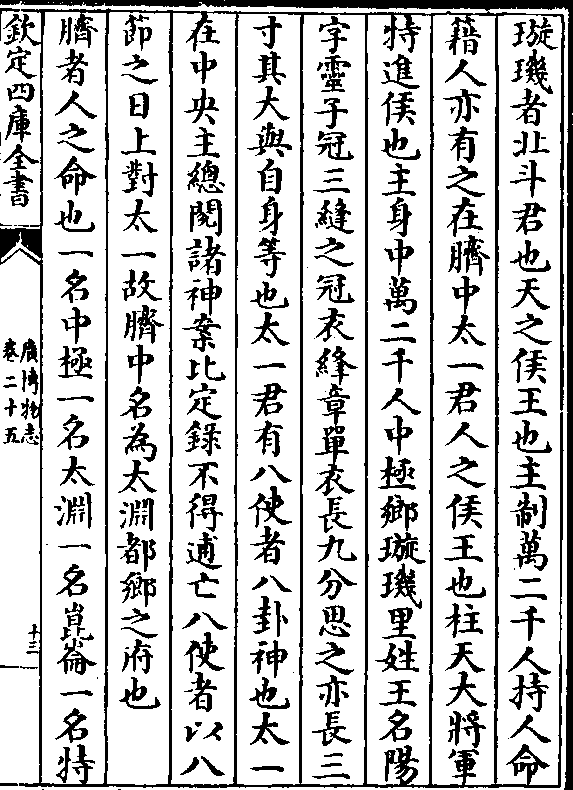 璇璣者北斗君也天之侯王也主制萬二千人持人命
籍人亦有之在臍中太一君人之侯王也柱天大將軍
特進侯也主身中萬二千人中極鄉璇璣里姓王名陽
字靈子冠三縫之冠衣縫章單衣長九分思之亦長三
寸其大與自身等也太一君有八使者八卦神也太一
在中央主總閱諸神案比定錄不得逋亡八使者以八
節之日上對太一故臍中名為太淵都鄉之府也
臍者人之命也一名中極一名太淵一名崑崙一名特
欽定四庫全書
廣博物志
卷二十五
十三